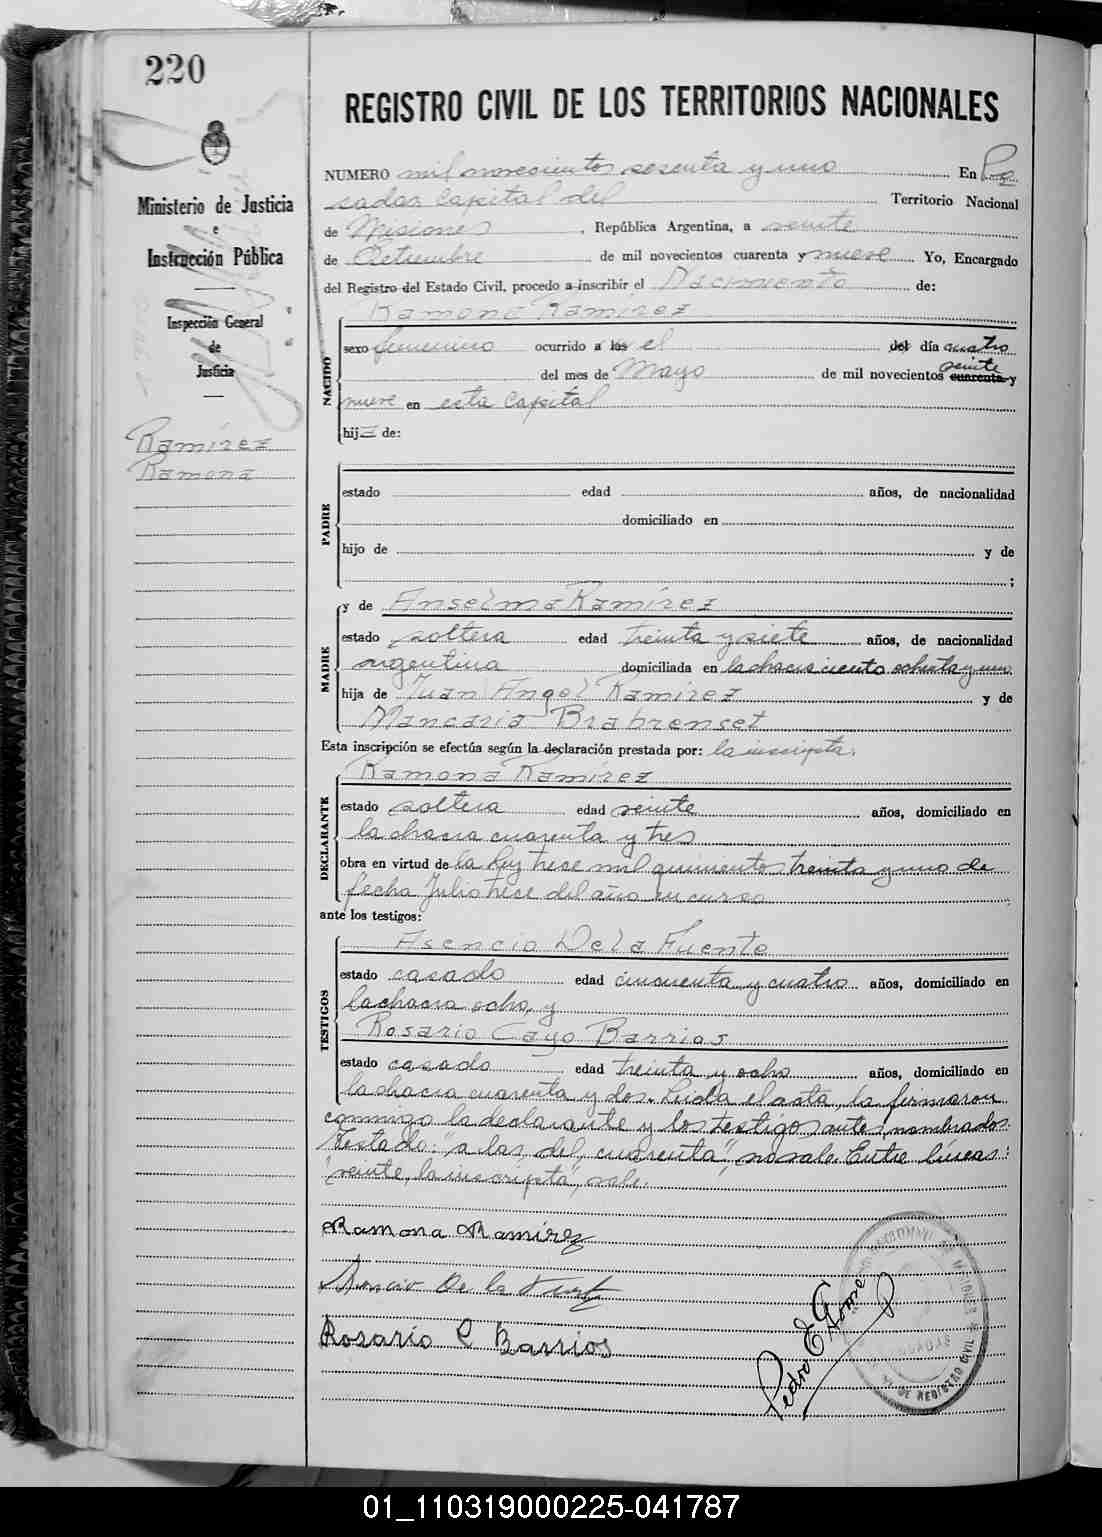 220
REGISTRO CIVIL DE LOS TERRITORIOS NACIONALES
Ministerio de Justicia
e
Instrucción Pública
Inspección General
de
Justicia
Ramírez
Ramona
NUMERO mil novecientos sesenta y uno En Po
sadas Capital del Territorio Nacional
de Misiones, República Argentina, a veinte
de Setiembre de mil novecientos cuarenta y nueve Yo, Encargado
del Registro del Estado Civil, procedo a inscribir el Nacimiento de:
Ramona Ramírez
NACIDO
sexo femenino ocurrido a las el del día cuatro
del mes de Mayo de mil novecientos cuarenta veinte y
nueve en esta Capital
hija de:
PADRE
estado edad años, de nacionalidad
domiciliado en
hijo de y de
;
MADRE
y de Anselma Ramírez
estado soltera edad treinta y siete años, de nacionalidad
argentina domiciliada en la chacra ciento ochenta y uno
hija de Juan Angel Ramírez y de
Mancaria Brabrenset
Esta inscripción se efectúa según la declaración prestada por: la inscripta.
DECLARANTE
Ramona Ramírez
estado soltera edad veinte años, domiciliado en
la chacra cuarenta y tres
obra en virtud de la Ley trece mil quinientos treinta y uno de
fecha Julio trece del año en curso
ante los testigos:
TESTIGOS
Asencio De la Fuente
estado casado edad cincuenta y cuatro años, domiciliado en
la chacra ocho, y
Rosario Cayo Barrios
estado casado edad treinta y ocho años, domiciliado en
la chacra cuarenta y dos. Leída el acta, la firmaron
conmigo la declarante y los testigos antes nombrados.
Testado: "a las, del, cuarenta", no vale. Entre líneas:
"veinte, la inscripta", vale.
Ramona Ramírez
Asencio De la Fuente
Rosario C Barrios
Pedro E Gome
DE REGISTRO CIVIL
01_110319000225-041787